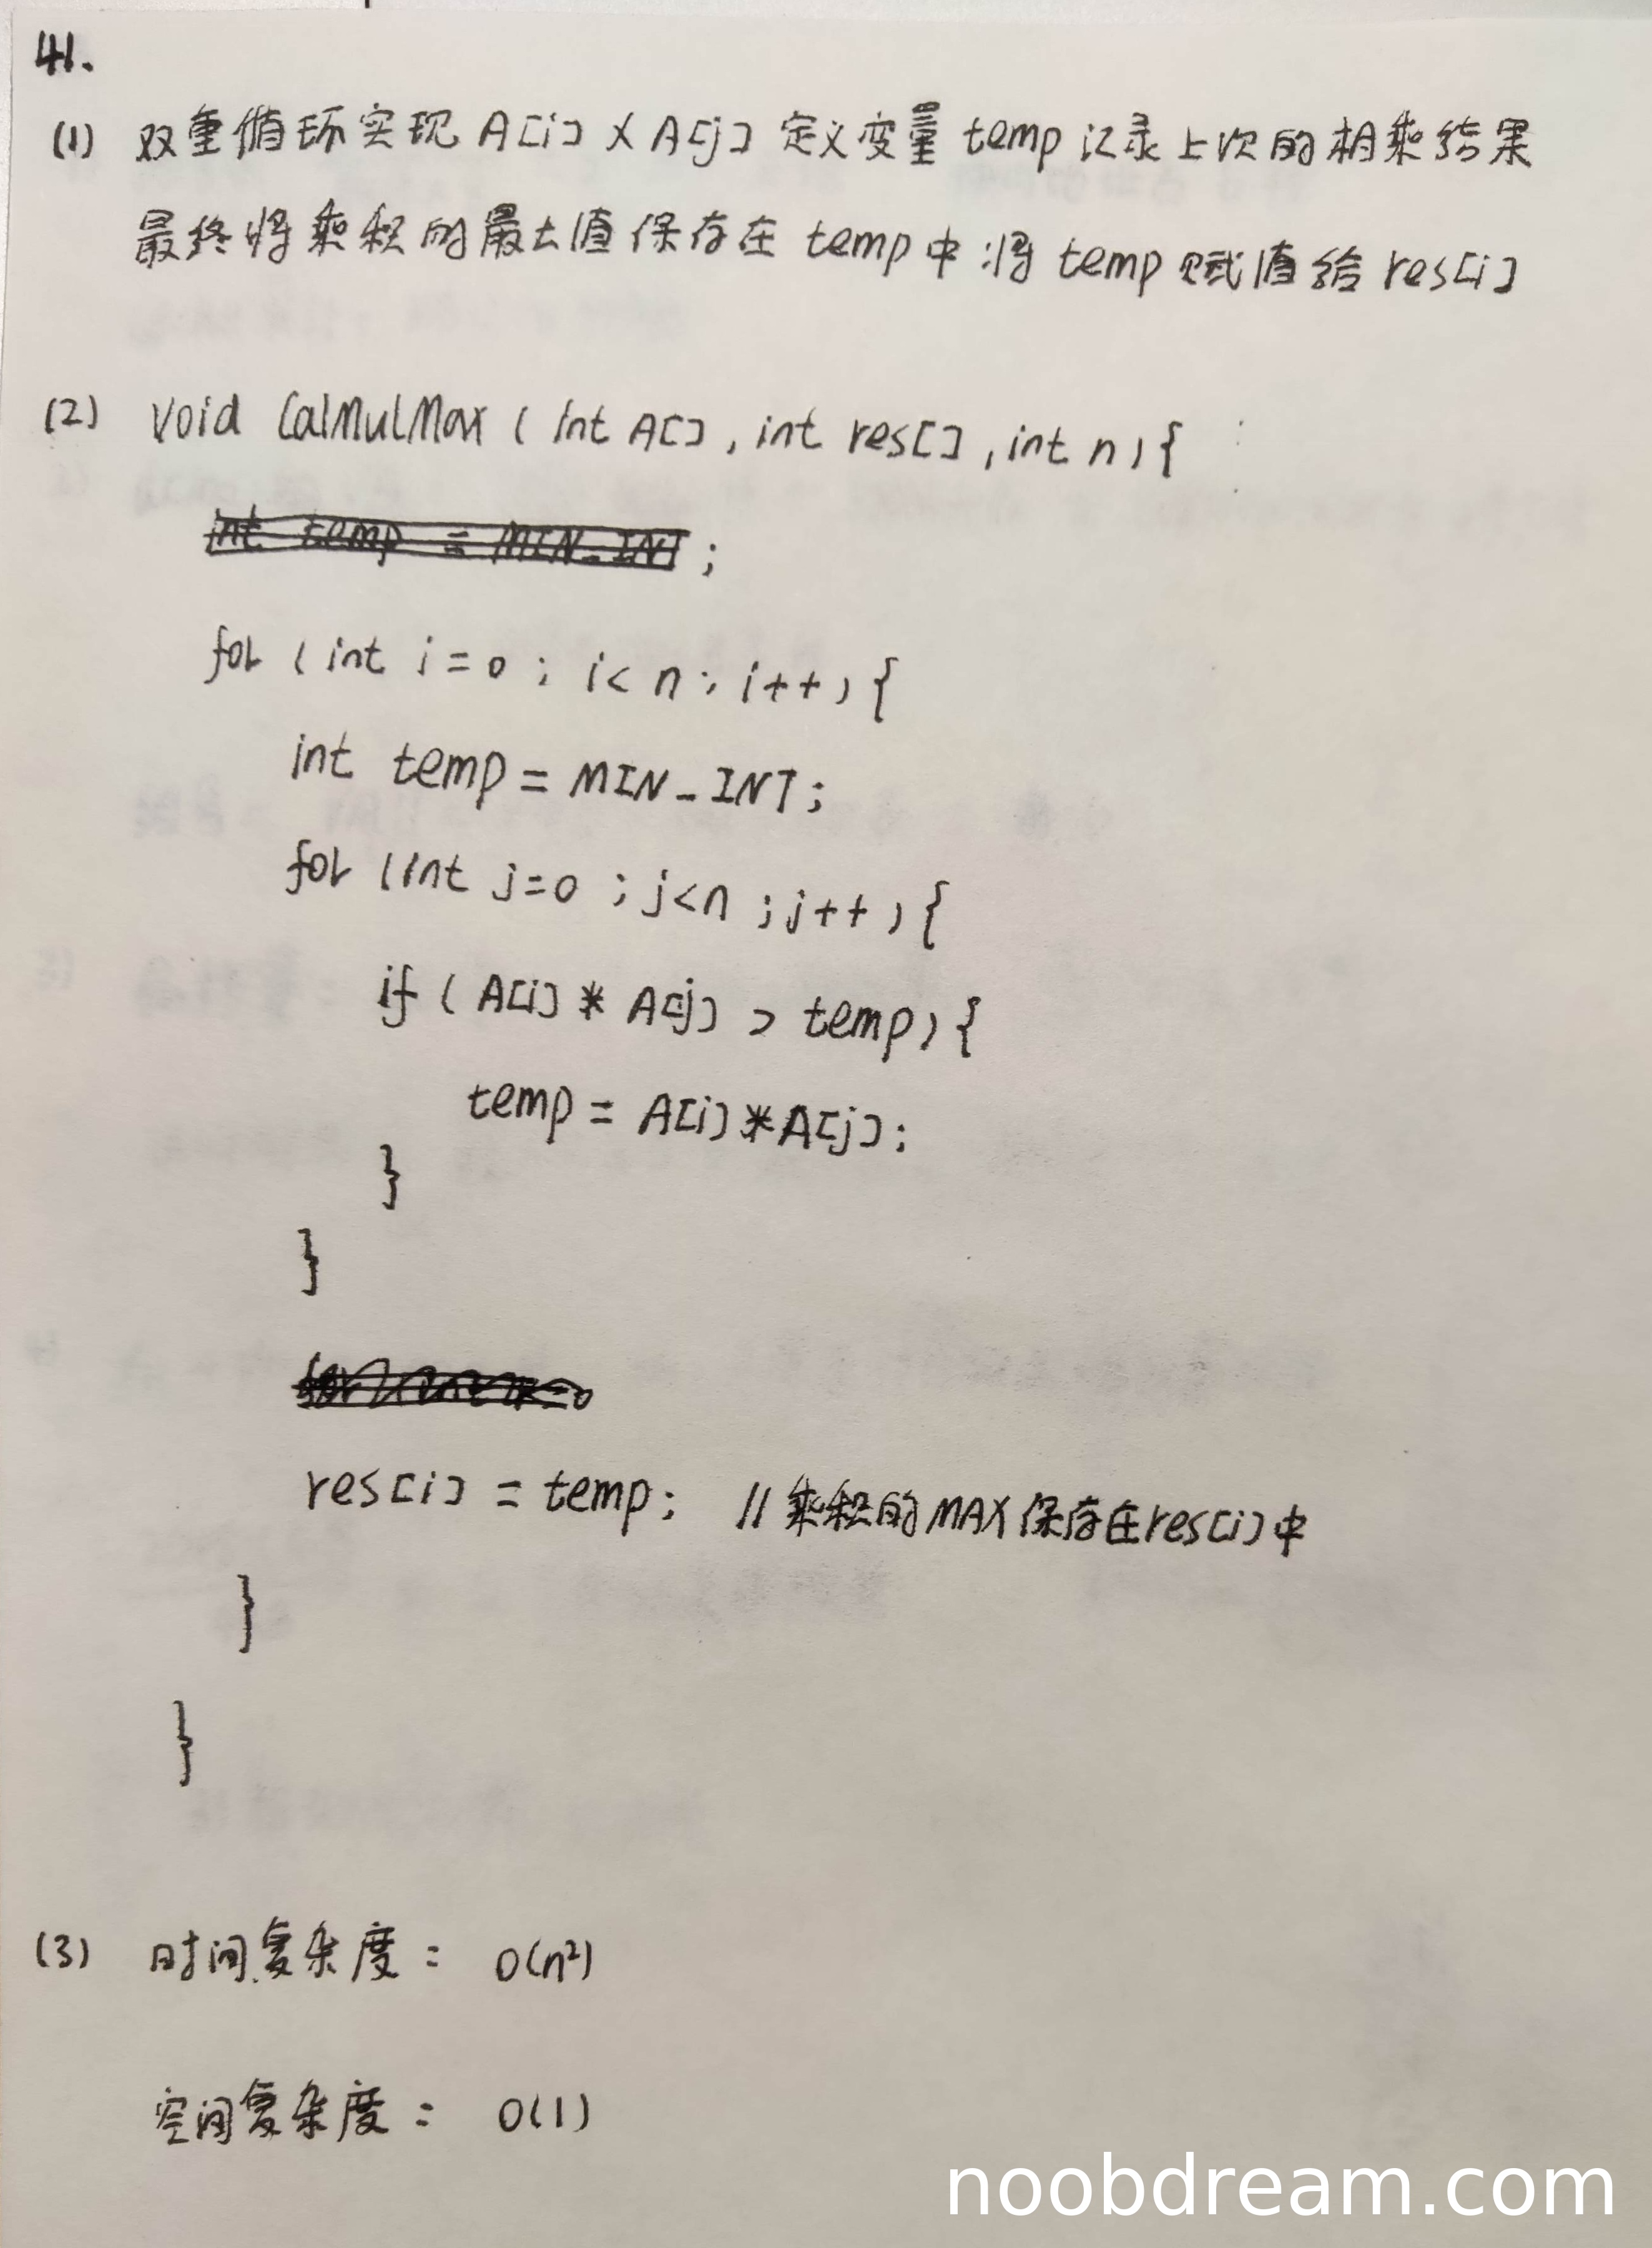 41.
(1) 双重循环实现 A[i] × A[j] 定义变量 temp 记录上次的相乘结果
最终将乘积的最大值保存在 temp 中 将 temp 赋值给 res[i]
(2) void CalMulMax ( int A[], int res[], int n) {
int temp = MIN_INT ;
for ( int i = 0 ; i < n ; i++ ) {
int temp = MIN_INT;
for (int j=0 ; j<n ; j++ ) {
if ( A[i] * A[j] > temp) {
temp = A[i] * A[j];
}
}
res[i] = temp; // 乘积的MAX保存在res[i]中
}
}
(3) 时间复杂度: O(n²)
空间复杂度: O(1)
noobdream.com